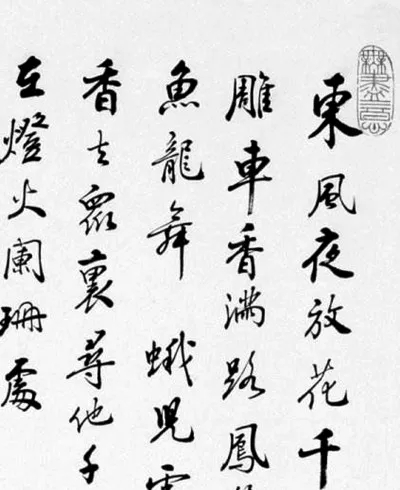 東風夜放花千
雕車香滿路鳳
魚龍舞 蛾兒
香去眾裏尋他千
在燈火闌珊處